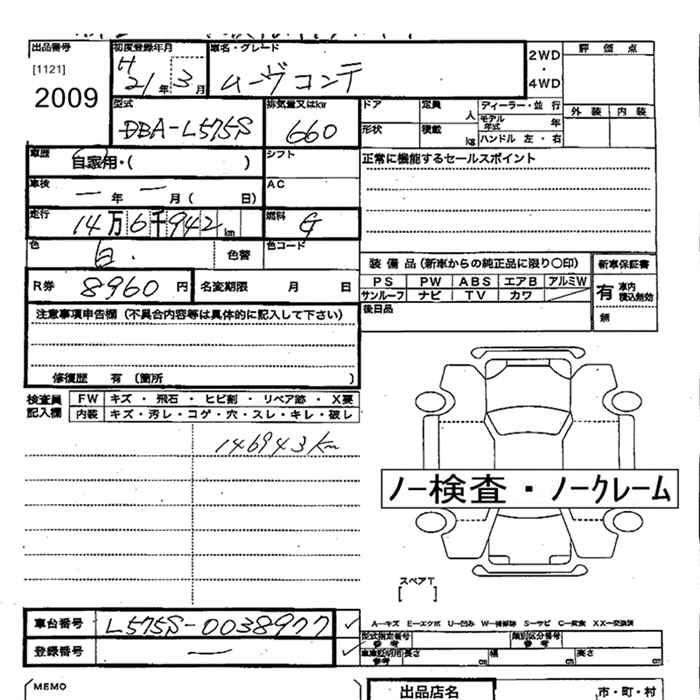 出品番号 初度登録年月 車名・グレード 2WD 評価点
[1121] H21年3月 ムーヴコンテ ・
2009 4WD 外装 内装
型式 排気量又はkw ドア 定員 人 ディーラー・並行
DBA-L575S 660 形状 積載 kg モデル年式 年
ハンドル 左・右
車歴 自家用・( ) シフト 正常に機能するセールスポイント
車検 一年一月( 日) AC
走行 14万6千942km 燃料 G
色 白. 色替 色コード
装備品(新車からの純正品に限り〇印) 新車保証書
R券 8960円 名変期限 月 日 PS PW ABS エアB アルミW 有 車内積込無効
サンルーフ ナビ TV カワ 無
注意事項申告欄(不具合内容等は具体的に記入して下さい) 後日品
修復歴 有(箇所 )
検査員記入欄 FW キズ・飛石・ヒビ割・リペア跡・X要
内装 キズ・汚レ・コゲ・穴・スレ・キレ・破レ
146943km
ノー検査・ノークレーム
スペアT
[ ]
車台番号 L575S-0038977 ✓ A-キズ E-エクボ U-凹み W-補修跡 S-サビ C-腐食 XX-交換済
登録番号 — ✓ 型式指定番号 参考 類別区分番号 参考
車車証明用 参考 長さ cm 幅 cm 高さ cm
MEMO 出品店名 市・町・村